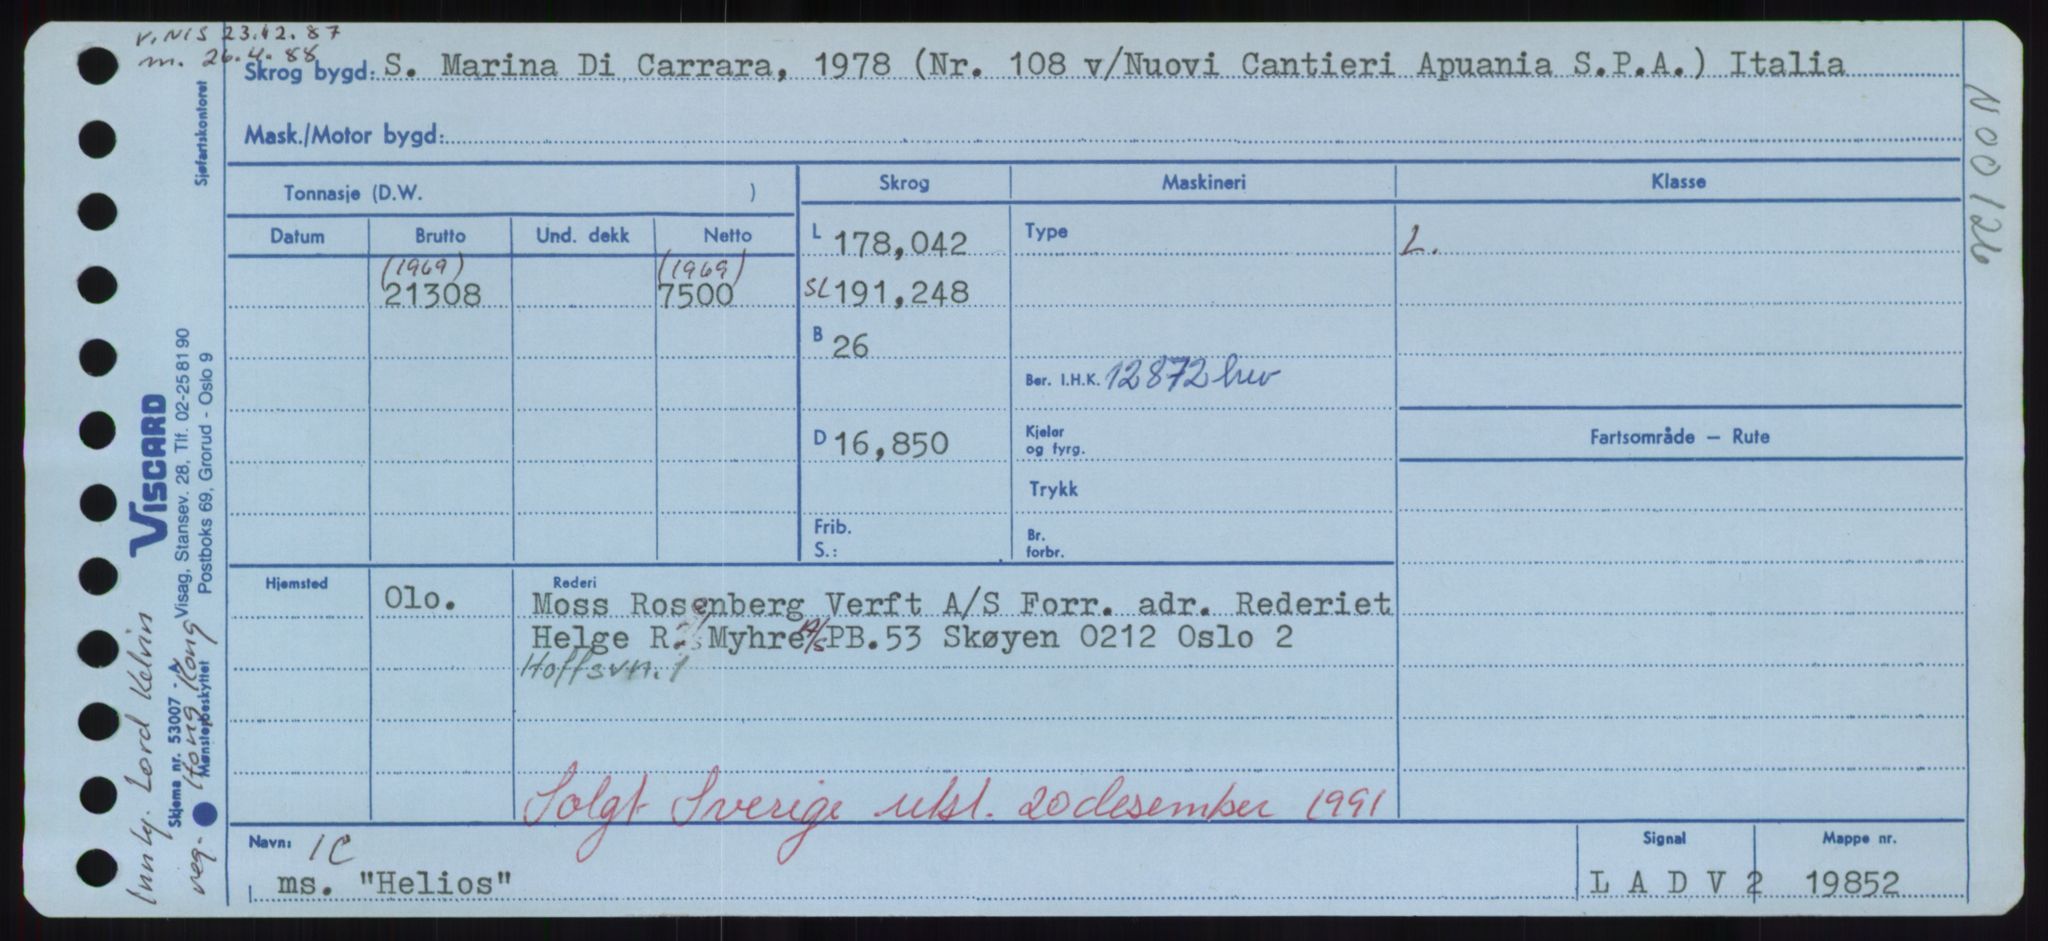 v. NIS 23.12.87
m. 26.4.88
Skrog bygd: S. Marina Di Carrara, 1978 (Nr. 108 v/Nuovi Cantieri Apuania S.P.A.) Italia
Mask./Motor bygd:
Tonnasje (D.W. )
Skrog Maskineri Klasse
Datum Brutto Und. dekk Netto
L 178,042 Type L.
(1969) (1969)
21308 7500 SL 191,248
B 26
Ber. I.H.K. 12872 hev
D 16,850 Kjeler og fyrg.
Fartsområde – Rute
Trykk
Frib.
S.:
Br. forbr.
Hjemsted Olo. Rederi
Moss Rosenberg Verft A/S Forr. adr. Rederiet
Helge R. Myhre A/S PB.53 Skøyen 0212 Oslo 2
Hoffsvn. 1
Solgt Sverige utst. 20 desember 1991
Navn: IC
ms. "Helios"
Signal
L A D V 2
Mappe nr.
19852
Sjøfartskontoret
VISCARD
Visag, Stansev. 28, Tlf. 02-25 81 90
Postboks 69, Grorud - Oslo 9
Skjema nr. 53007 - A
Mønsterbeskyttet
Innby. Lord Kelvin
reg. Hong Kong
N 00126